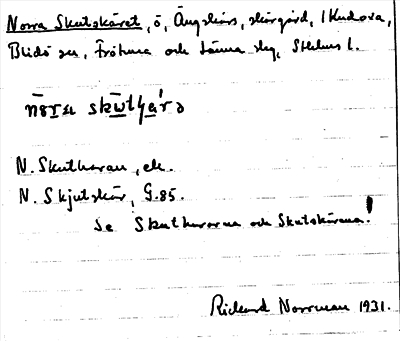 Norra Skutskäret, ö, Ängskärs skärgård, i Kudoxa,
Blidö sn, Frötuna och Länna slg, Sthlms l.
N. Skutharan, ek.
N. Skjutskär, G.85.
Se Skutkararna och Skutskärana!
Rickard Norrman 1931.